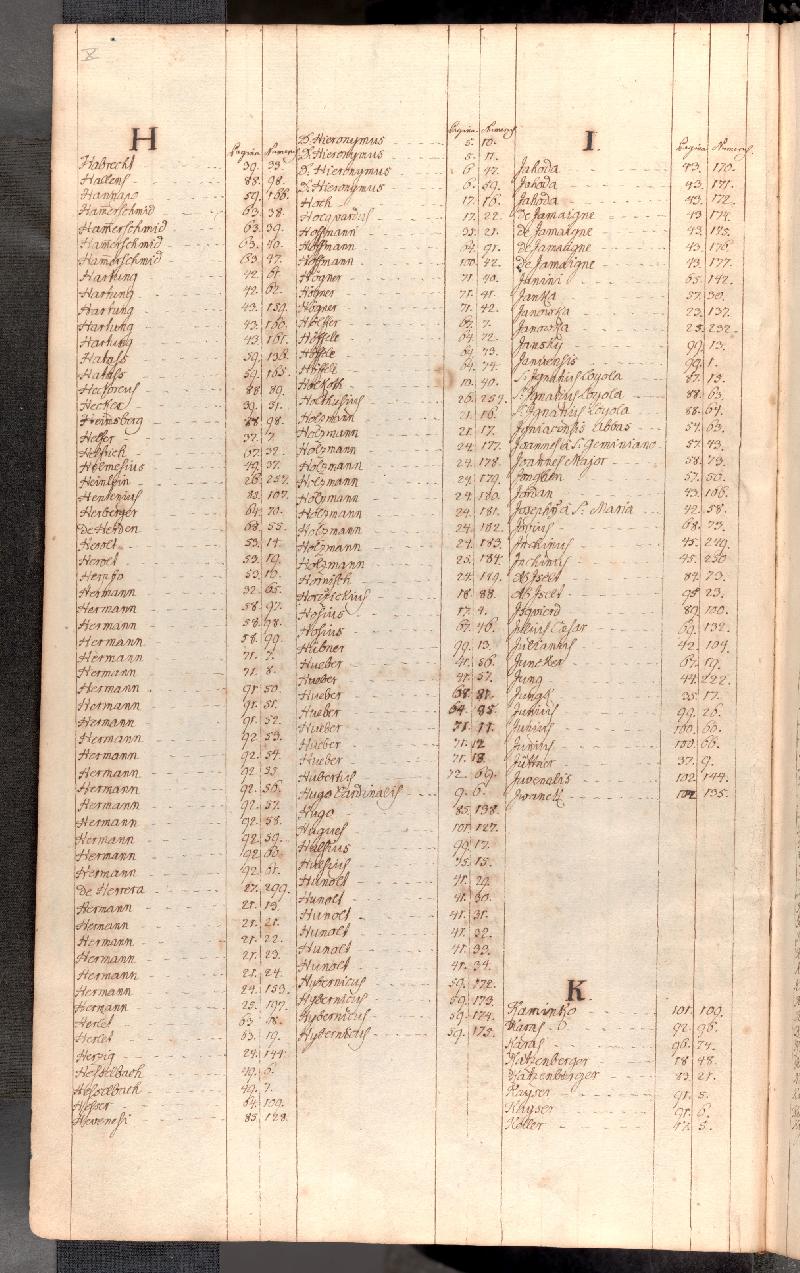 H
Pagina Numerus
Habrecht 39. 33.
Hallens 88. 98.
59. 166.
Hamerschmid 63. 38.
Hamerschmid 63. 39.
Hamerschmid 63. 40.
Hamerschmid 63. 47.
Hartung 42. 61.
Hartung 42. 62.
Hartung 43. 159.
Hartung 43. 160.
Hartung 43. 161.
59. 136.
59. 165.
Hectoreus 88. 89.
Hecker 39. 31.
88. 98.
Helfer 37. 7.
67. 32.
49. 37.
Heinlein 26. 257.
Hentenius 23. 107.
Herberger 64. 70.
68. 55.
Herolt 53. 14.
Herolt 53. 19.
53. 10.
Hermann 32. 65.
Hermann 58. 97.
Hermann 58. 98.
Hermann 58. 99.
Hermann 71. 7.
Hermann 71. 8.
Hermann 91. 50.
Hermann 91. 51.
Hermann 91. 52.
Hermann 92. 53.
Hermann 92. 54.
Hermann 92. 55.
Hermann 92. 56.
Hermann 92. 57.
Hermann 92. 58.
Hermann 92. 59.
Hermann 92. 60.
Hermann 92. 61.
De Herrera 27. 299.
Hermann 21. 19.
Hermann 21. 21.
Hermann 21. 22.
Hermann 21. 23.
Hermann 21. 24.
Hermann 24. 153.
Hermann 25. 197.
Herlet 63. 18.
Herlet 63. 19.
Herzig 24. 144.
Hesselbach 49. 6.
Hesselbach 49. 7.
64. 109.
Hevenesi 85. 128.
Pagina Numerus
S. Hieronymus 5. 10.
S. Hieronymus 5. 11.
S. Hieronymus 6. 47.
S. Hieronymus 6. 59.
Hoch 17. 16.
Hocquardus 17. 22.
Hoffmann 21.
Hoffmann 64. 91.
Hoffmann 100. 42.
Högner 71. 40.
Högner 71. 41.
Högner 71. 42.
67. 7.
Höffele 64. 72.
Höffele 64. 73.
Höffele 64. 74.
10. 40.
Holthusius 26. 257.
Holzmann 21. 16.
Holzmann 21. 17.
Holzmann 24. 177.
Holzmann 24. 178.
Holzmann 24. 179.
Holzmann 24. 180.
Holzmann 24. 181.
Holzmann 24. 182.
Holzmann 24. 183.
Holzmann 25. 184.
24. 149.
18. 88.
Hosius 17. 4.
Hosius 67. 46.
Hübner 99. 13.
Hueber 41. 56.
Hueber 41. 57.
Hueber 68. 81.
Hueber 64. 85.
Hueber 71. 11.
Hueber 71. 12
Hueber 71. 18.
Hubertus 72. 69.
Hugo Cardinalis 9. 6.
Hugo 85. 138.
Hugues 101. 127.
Hulsius 99. 17.
Hulsius 45. 15.
Hunolt 41. 29.
Hunolt 41. 30.
Hunolt 41. 31.
Hunolt 41. 32.
Hunolt 41. 33.
Hunolt 41. 34.
Hybernicus 59. 172.
Hybernicus 59. 173.
Hybernicus 59. 174.
Hybernicus 59. 175.
I.
Pagina Numerus.
Jahoda 43. 170.
Jahoda 43. 171.
Jahoda 43. 172.
De Jamaigne 43. 174.
De Jamaigne 43. 175.
De Jamaigne 43. 176.
De Jamaigne 43. 177.
Janini 65. 142.
Janka 57. 30.
Janowka 23. 137.
Janowka 25. 232.
Jansky 99. 13.
Januensis 99. 1.
S. Ignatius Loyola 87. 13.
S. Ignatius Loyola 88. 63.
S. Ignatius Loyola 88. 64.
Igniacensis Abbas 54. 63.
Joannes à S. Geminiano 57. 43.
Joannes Major 58. 73.
57. 50.
Jordan 43. 166.
Joseph à S. Maria 42. 58.
68. 73.
Inchinus 45. 249.
Inchinus 45. 250
Ab Isselt 84. 73.
Ab Isselt 95. 23.
89. 100.
Julius Cæsar 69. 132.
42. 104.
Juncker 67. 19.
Jung 44. 222.
35. 17.
Junius 99. 26.
Junius 100. 60.
Junius 100. 66.
Jüttner 37. 9.
Juvenalis 102. 144.
102. 135.
K.
101. 109.
Karas 92. 96.
Karas 96. 74.
Katzenberger 18. 48.
Katzenberger 23. 21.
Kayser 91. 5.
Kayser 91. 6.
Köller 47. 5.